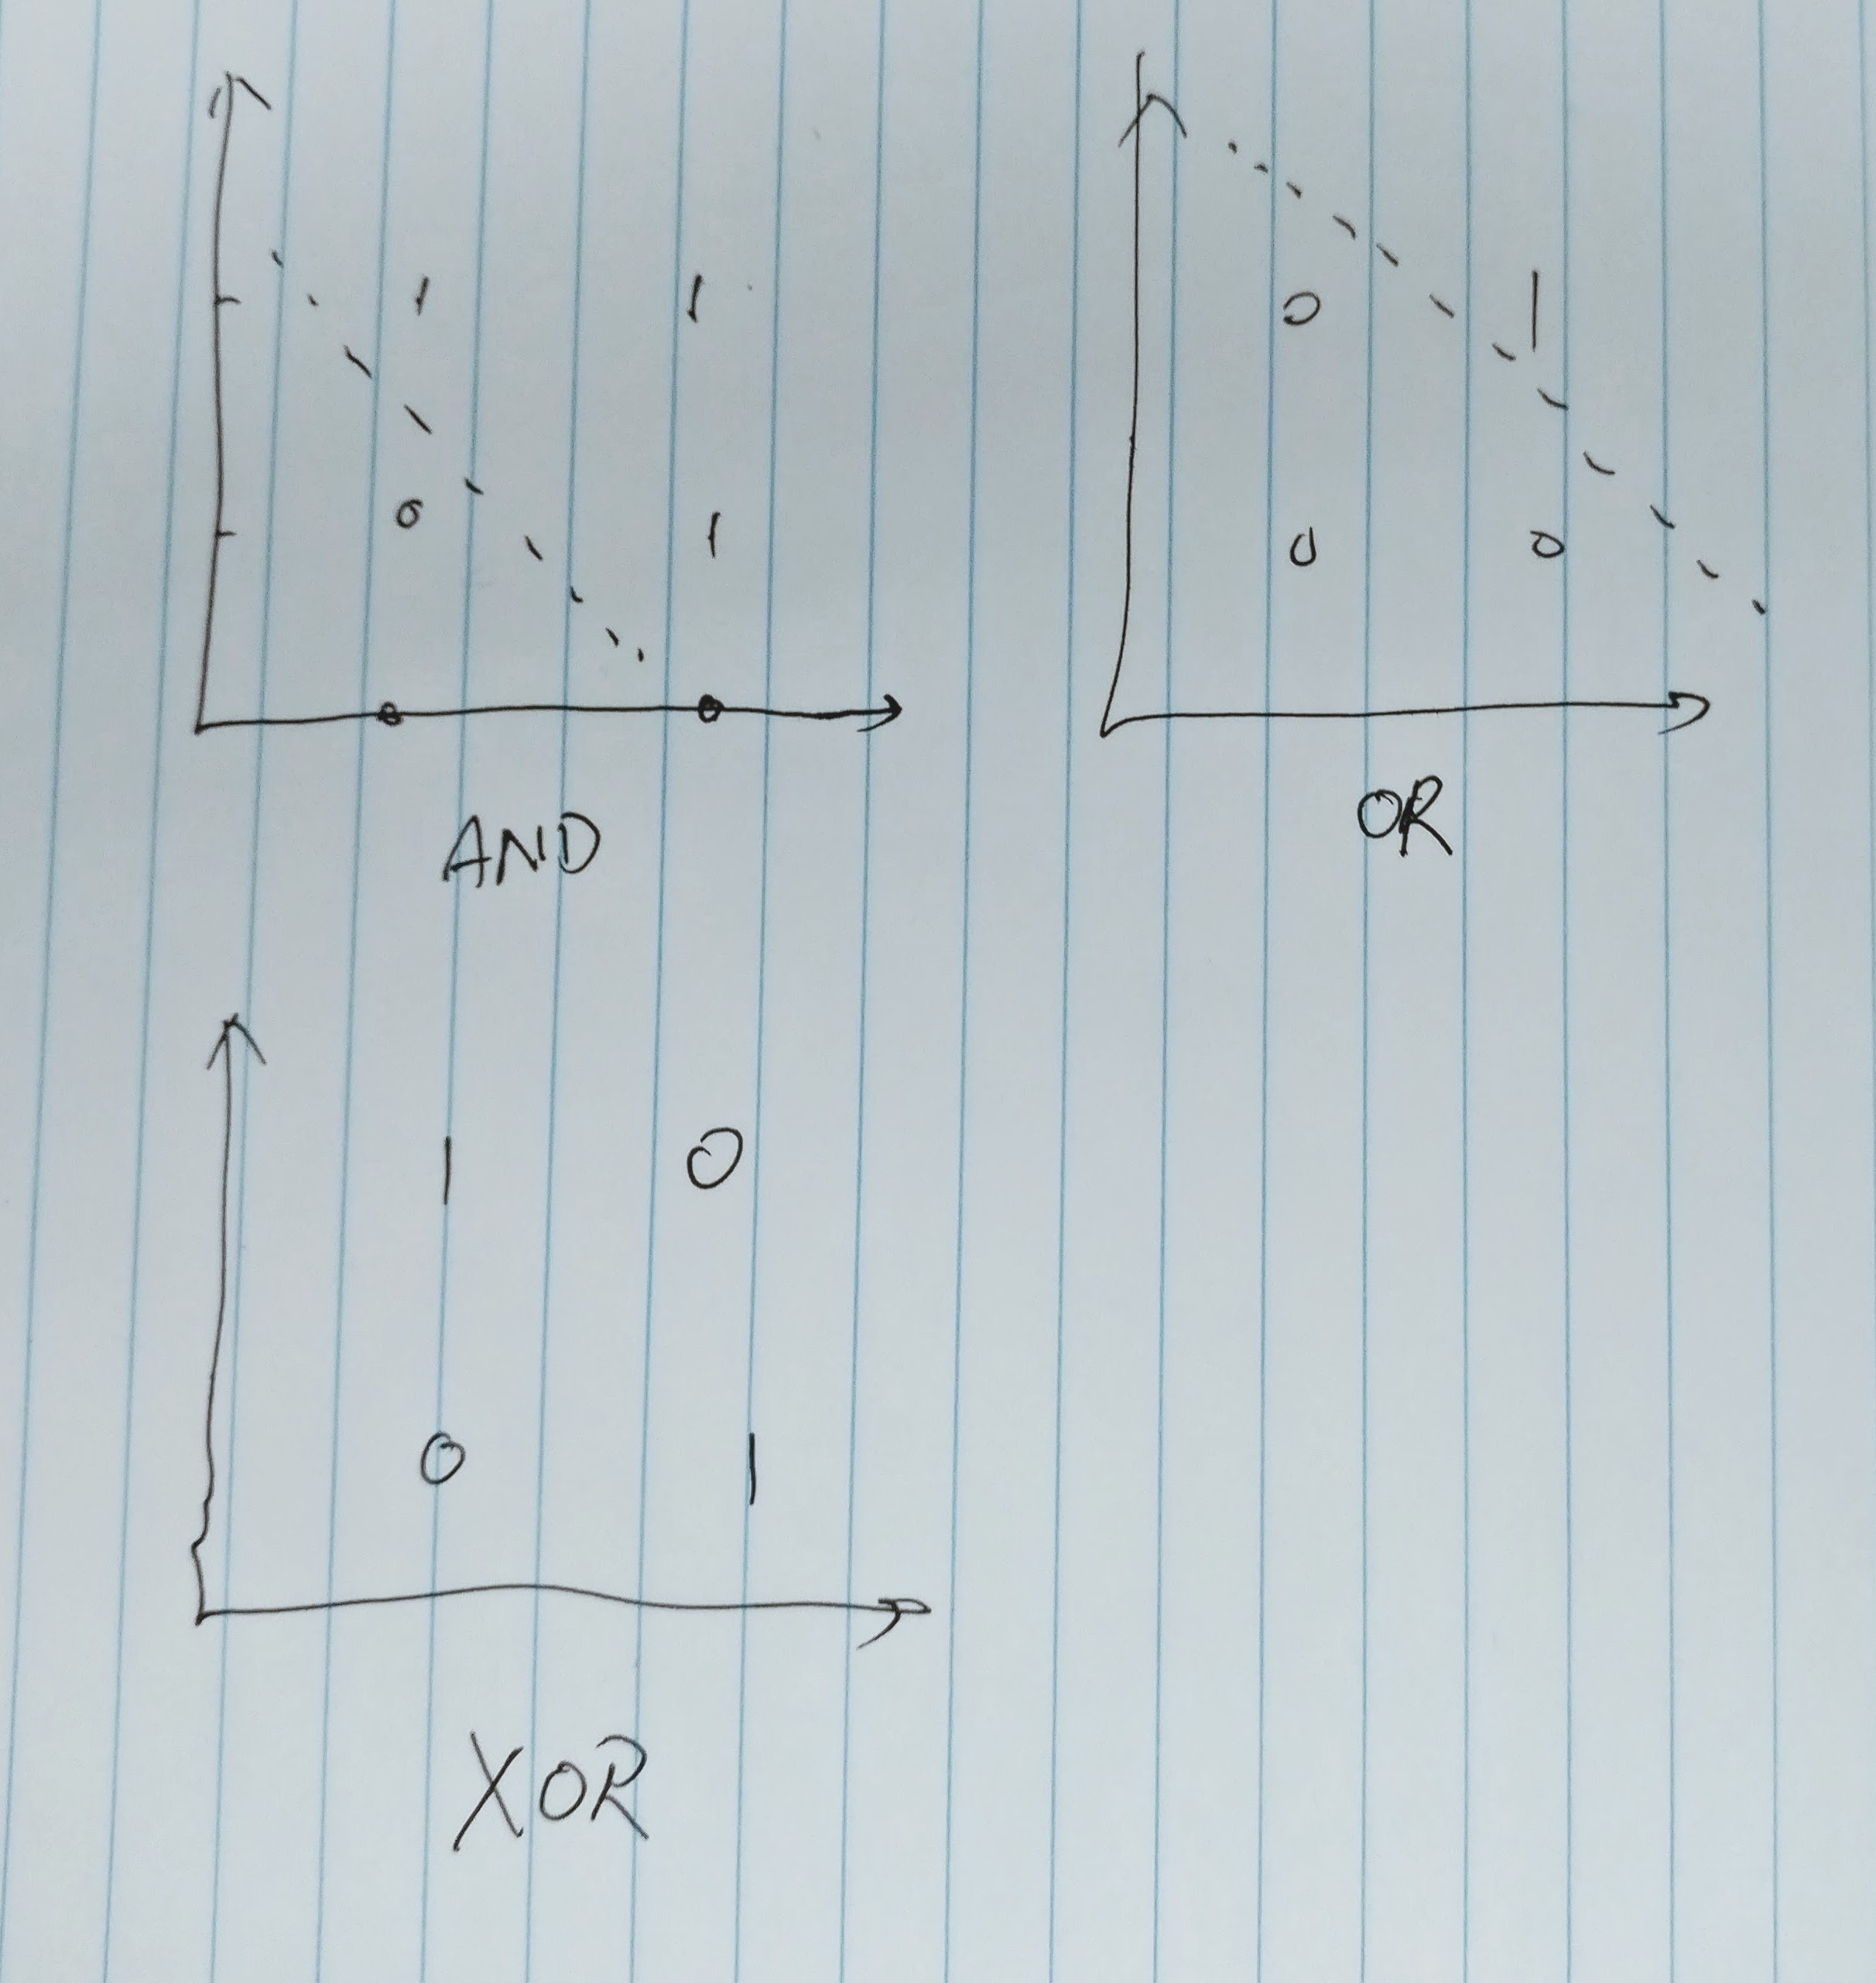 1 1
0 1
AND
0 1
0 0
OR
1 0
0 1
XOR